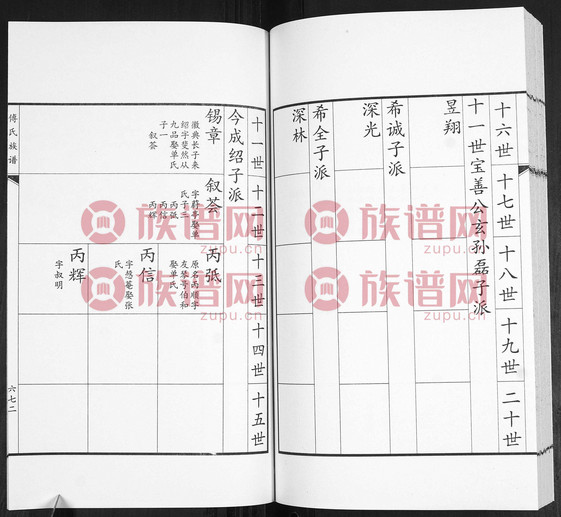 十六世
十七世
十八世
十九世
二十世
十一世宝善公玄孙磊子派
昱翔
希诚子派
深光
希全子派
深林
十一世
十二世
十三世
十四世
十五世
今成绍子派
锡章
徽典长子来
绍字斐然从
九品娶单氏
子一
叙荟
叙荟
氏子三
丙弧
丙信
丙辉
丙弧
原名丙顺字
友琴等伯和
娶单氏
丙信
氏
丙辉
字叔明
傅氏族谱
六七二
族谱网
zupu.cn
族谱网
zupu.cn
族谱网
zupu.cn
族谱网
zupu.cn